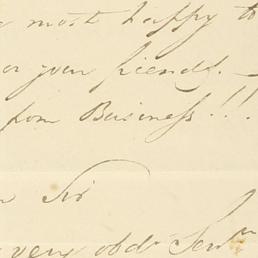 most happy to
or your friends. —
from Business!!!
Sir
very obdt Servt